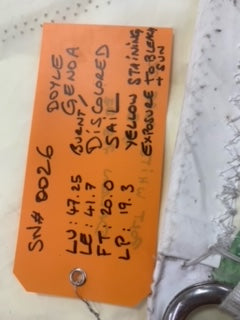 SN# 0026
DOYLE
GENOA
BURNT/
DISCOLORED
SAIL
LU: 47.25
LE: 41.7
FT: 20.0
LP: 19.3
YELLOW STAINING
EXPOSURE TO BLEACH
+ SUN